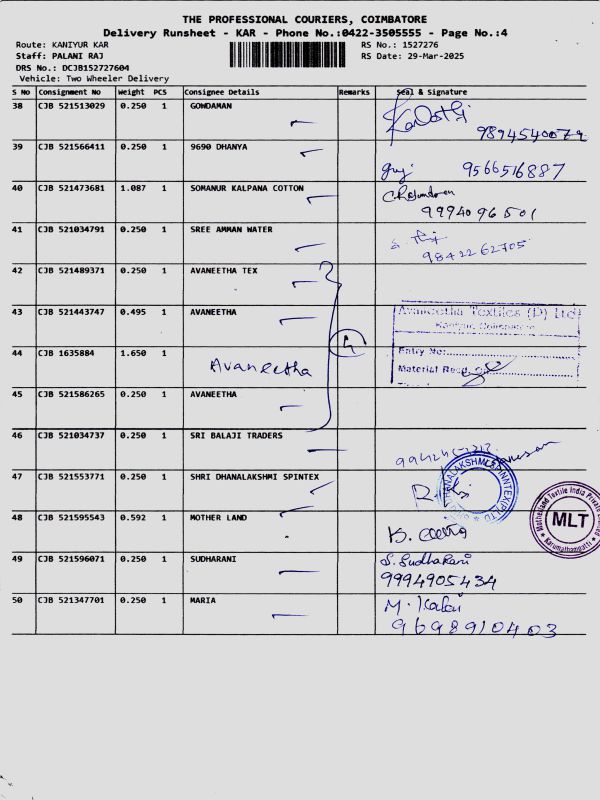 THE PROFESSIONAL COURIERS, COIMBATORE
Delivery Runsheet - KAR - Phone No.:0422-3505555 - Page No.:4
Route: KANIYUR KAR RS No.: 1527276
Staff: PALANI RAJ RS Date: 29-Mar-2025
DRS No.: DCJB152727604
Vehicle: Two Wheeler Delivery
S No Consignment No Weight PCS Consignee Details Remarks Seal & Signature
38 CJB 521513029 0.250 1 GOWDAMAN
9894540079
39 CJB 521566411 0.250 1 9690 DHANYA
9566516887
40 CJB 521473681 1.087 1 SOMANUR KALPANA COTTON
9994096501
41 CJB 521034791 0.250 1 SREE AMMAN WATER
9842262705
42 CJB 521489371 0.250 1 AVANEETHA TEX
43 CJB 521443747 0.495 1 AVANEETHA
Avaneetha Textiles (P) Ltd
Kaniyur Coimbatore
44 CJB 1635884 1.650 1 Avaneetha 4
Entry No:
Material Recd.
45 CJB 521586265 0.250 1 AVANEETHA
46 CJB 521034737 0.250 1 SRI BALAJI TRADERS
47 CJB 521553771 0.250 1 SHRI DHANALAKSHMI SPINTEX
48 CJB 521595543 0.592 1 MOTHER LAND
Motherland Textile India Private Limited
MLT
Karumathampatti
49 CJB 521596071 0.250 1 SUDHARANI S. Sudharani
9994905434
50 CJB 521347701 0.250 1 MARIA
9698910403